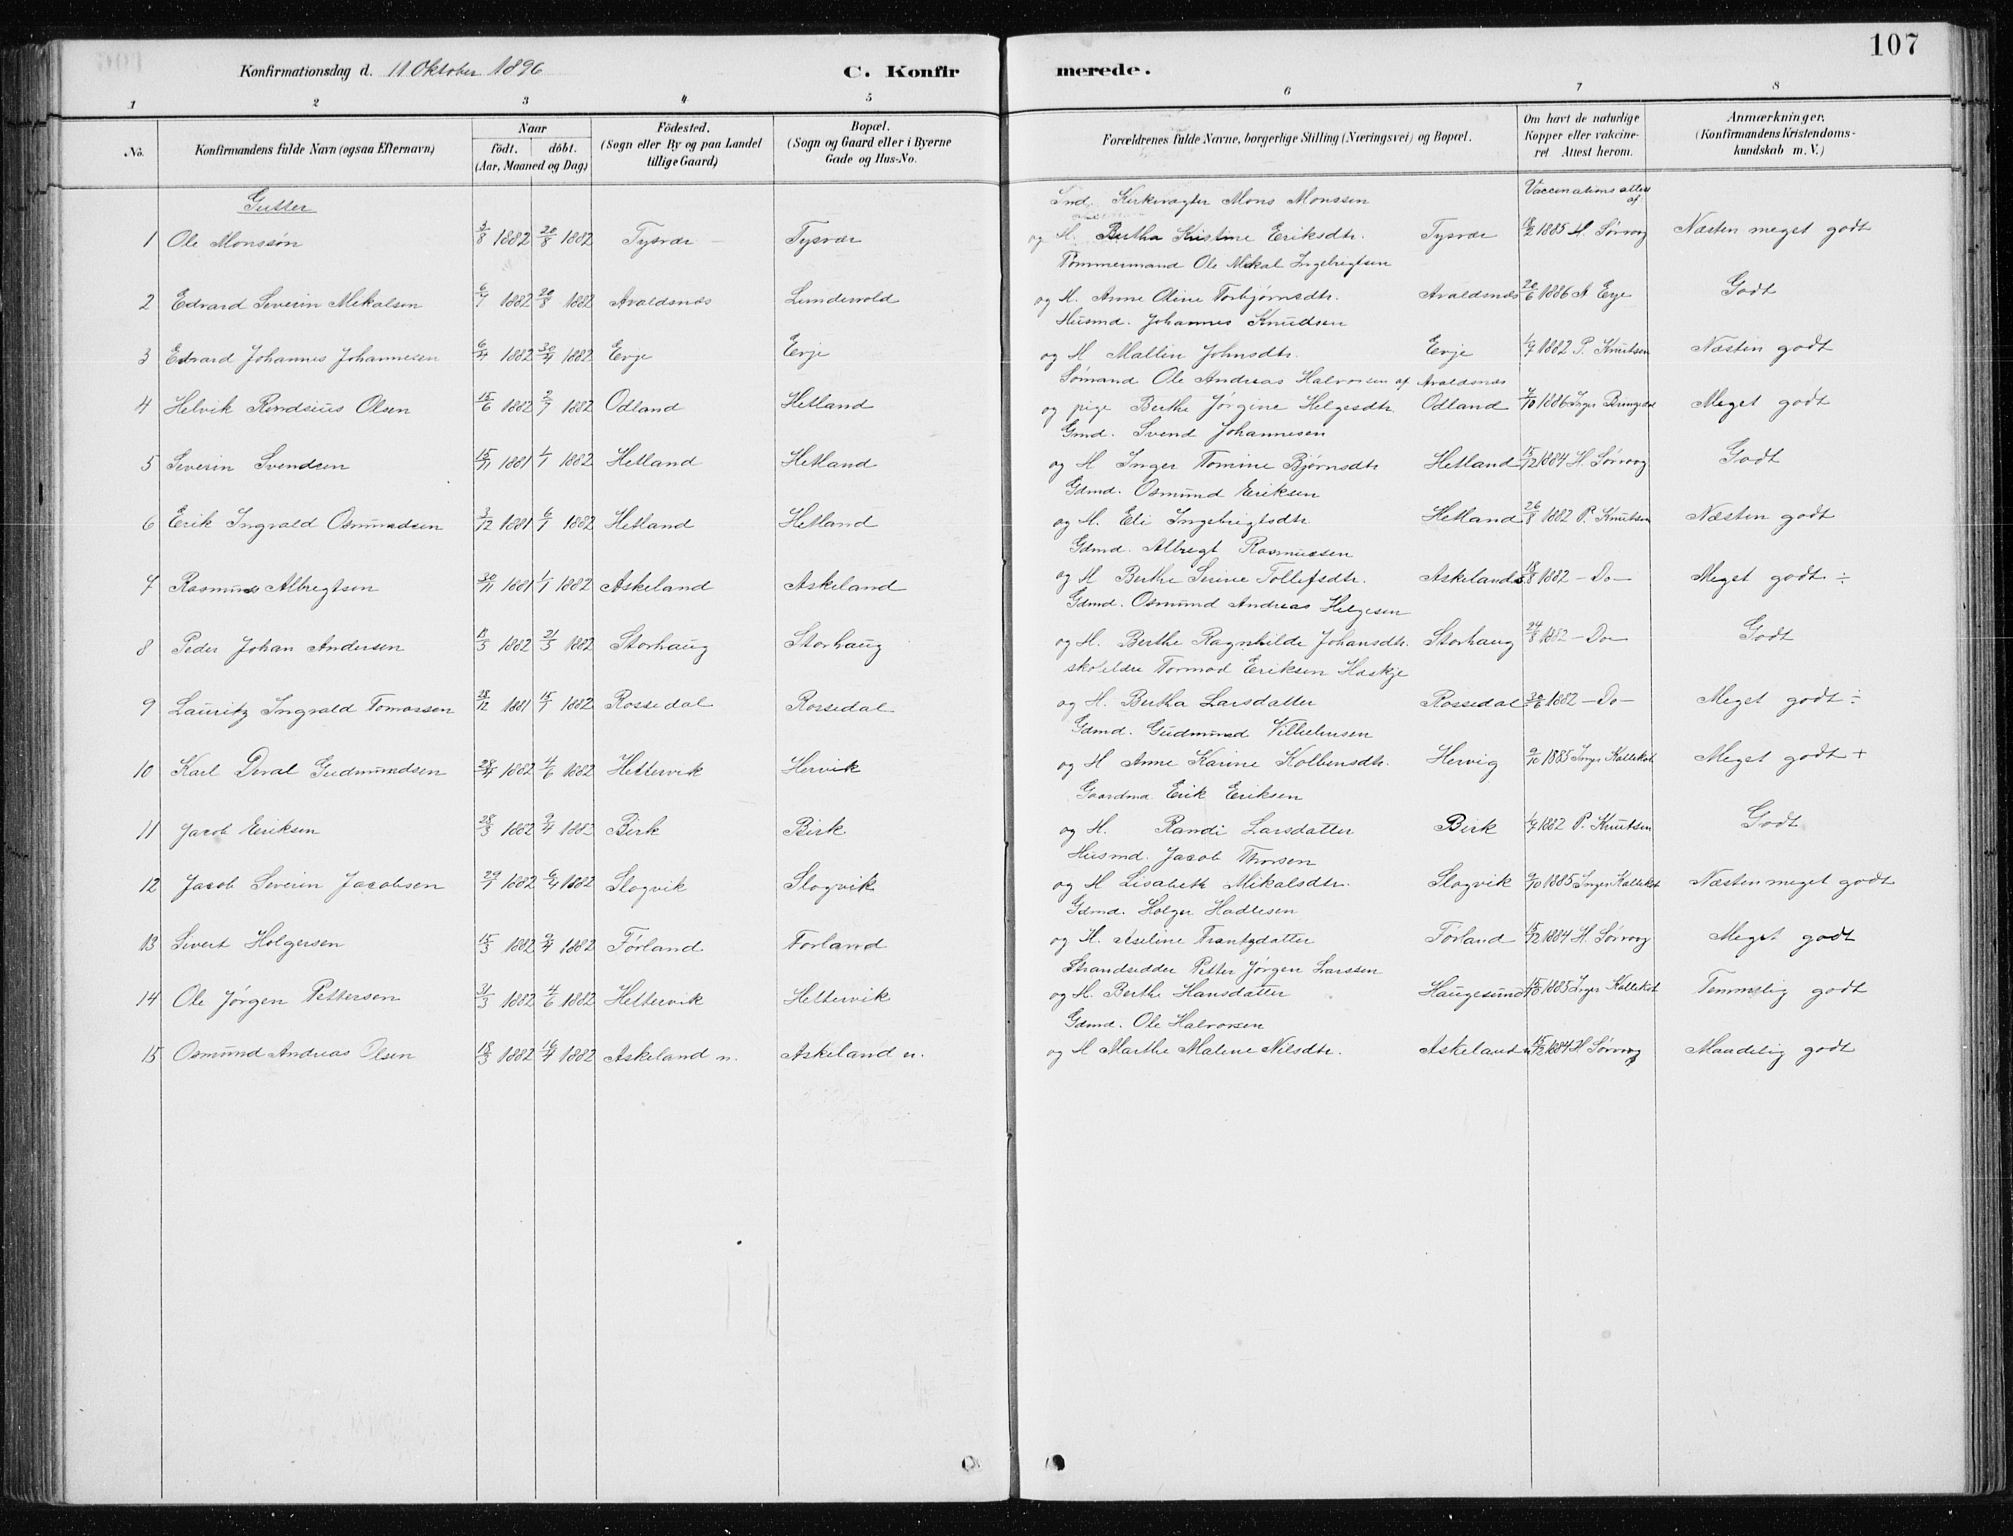 107
Konfirmationsdag d. 11 Oktober 1896
C. Konfirmerede.
1 2 3 4 5 6 7 8
No.
Konfirmandens fulde Navn (ogsaa Efternavn)
Naar
födt. döbt.
(Aar, Maaned og Dag)
Födested.
(Sogn eller By og paa Landet
tillige Gaard)
Bopæl.
(Sogn og Gaard eller i Byerne
Gade og Hus-No.
Forældrenes fulde Navne, borgerlige Stilling (Næringsvei) og Bopæl.
Om havt de naturlige
Kopper eller vakcine-
ret Attest herom.
Anmærkninger.
(Konfirmandens Kristendoms-
kundskab m. V.)
Gutter
Vaccinations attest
af
Ind. Kirkevagter Mons Monssen
1 Ole Monssøn 3/8 1882 20/8 1882 Tysvær Tysvær og H. Bertha Kristine Eriksdtr. Tysvær 18/2 1885 H. Sørvog Næsten meget godt
Tømmermand Ole Mikal Ingebregtsen
2 Edvard Severin Mikalsen 6/7 1882 20/8 1882 Avaldsnæs Lundevold og H. Anne Oline Torbjørnsdtr. Avaldsnæs 20/6 1886 A Eye Godt
Husmd. Johannes Knudsen
3 Edvard Johannes Johannesen 6/4 1882 30/4 1882 Evje Evje og H Mallin Johnsdtr. Evje 6/9 1882 P. Knutsen Næsten godt
Sømand Ole Andreas Halvorsen af Avaldsnæs
4 Helvik Rendsius Olsen 15/6 1882 2/7 1882 Odland Hetland og pige Berthe Jørgine Helgesdtr. Odland 7/10 1886 Inger Meget godt
Gmd. Svend Johannesen
5 Severin Svendsen 15/11 1881 1/1 1882 Hetland Hetland og H Inger Tomine Bjørnsdtr Hetland 15/12 1884 H. Sørvog Godt
Gdmd. Osmund Eriksen
6 Erik Ingvald Osmundsen 3/12 1881 6/1 1882 Hetland Hetland og H. Eli Ingebrigtsdtr Hetland 26/8 1882 P. Knutsen Næsten godt
Gdmd. Albregt Rasmussen
7 Rasmus Albregtsen 30/11 1881 1/1 1882 Askeland Askeland og H Berthe Serine Tollefsdtr. Askeland 18/8 1882 - Do - Meget godt ÷
Gdmd. Osmund Andreas Helgesen
8 Peder Johan Andersen 11/3 1882 21/3 1882 Storhaug Storhaug og H. Berthe Ragnhilde Johansdtr. Storhaug 24/8 1882 - Do - Godt
Tormod Eriksen Haskje
9 Lauritz Ingvald Tomassen 28/12 1881 15/1 1882 Rossedal Rossedal og H. Bertha Larsdatter Rossedal 30/6 1882 - Do - Meget godt ÷
Gdmd. Gudmund Villielmsen
10 Karl Dival Gudmundsen 28/4 1882 4/6 1882 Hettervik Hervik og H Anne Karine Kolbensdtr. Hervig 9/10 1885 Inger Kallekot Meget godt +
Gaardmd. Erik Eriksen
11 Jacob Eriksen 28/3 1882 9/4 1882 Birk Birk og H. Randi Larsdatter Birk 6/9 1882 P. Knutsen Godt
Husmd. Jacob Thorsen
12 Jacob Severin Jacobsen 29/1 1882 6/4 1882 Slogvik Slogvik og H Lisabeth Mikalsdtr. Slogvik 9/10 1885 Inger Kallekot Næsten meget godt
Gdmd. Holger Hadlesen
13 Sivert Holgersen 15/3 1882 9/4 1882 Førland Førland og H. Aseline Trantzdatter Førland 15/12 1884 H. Sørvog Meget godt
Strandsidder Petter Jørgen Larssen
14 Ole Jørgen Pettersen 31/3 1882 4/6 1882 Hettervik Hettervik og H. Berthe Hansdatter Haugesund 15/10 1885 Inger Kallekot Temmelig godt
Gdmd. Ole Halvorsen
15 Osmund Andreas Olsen 18/3 1882 16/4 1882 Askeland n. Askeland n. og H Marthe Malene Nilsdtr. Askeland n 15/12 1884 H Sørvog Maadelig godt